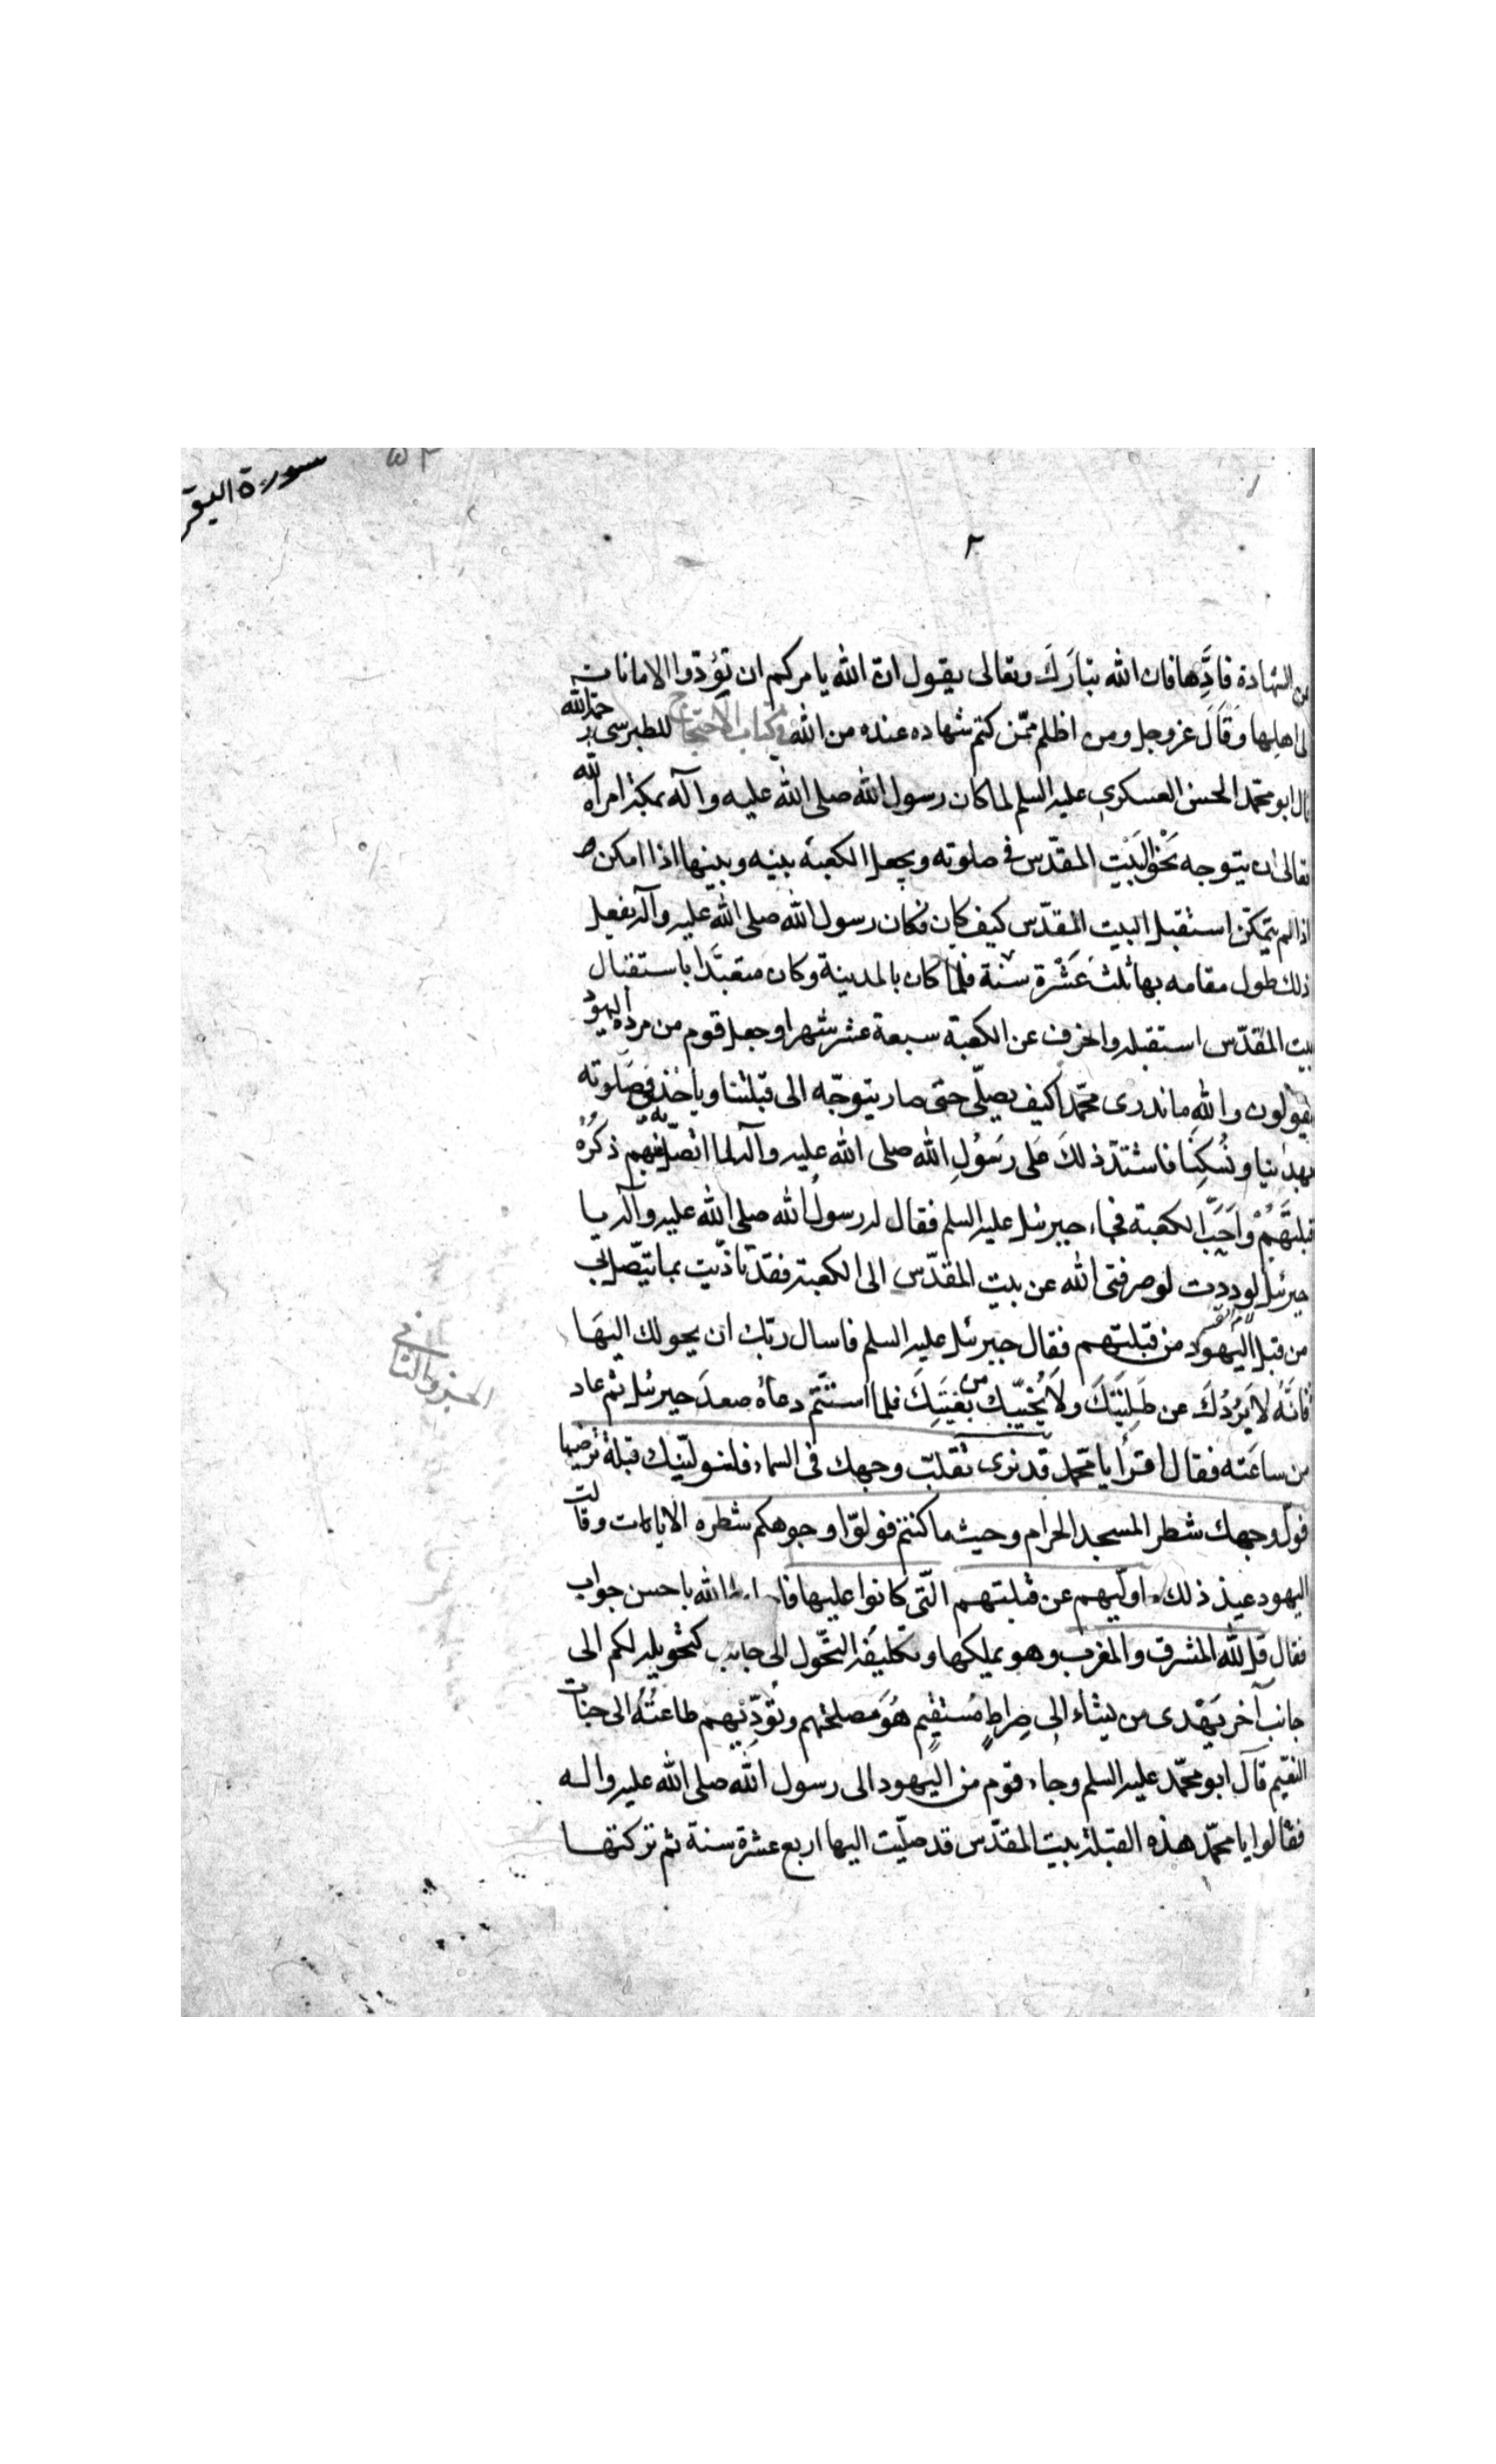 سورة البقر
٢
من الشهادة فادِّها فان الله تبارَكَ وتعالى يقول ان الله يامركم ان تؤدوا الامانات
الى اهلها وَقَالَ عز وجل ومن اظلم ممّن كتم شهاده عنده من الله وفي كتاب الاحتجاج للطبرسى رحمه الله
قال ابو محمّد الحسن العسكري عليه السلم لما كان رسول الله صلى الله عليه وآله بمكة امره الله
تعالى ان يتوجه نَحْوَ البَيْتِ المقدّس في صلوته ويجعل الكعبة بينه وبينها اذا امكن و
اذا لم يتمكّن استقبل البيت المقدّس كيف كان فكان رسول الله صلى الله عليه وآله يفعل
ذلك طول مقامه بها ثلث عَشْرة سنة فلما كان بالمدينة وكان متعبَّدا باستقبال
بيت المقدّس استقبله وانحرف عن الكعبة سبعة عشر شهرا وجعل قوم من مرده اليهود
يقولون والله ماندرى محمّدا كيف يصلّى حتى صار يتوجّه الى قبلتنا وياخذ في صَلوته
بهدينا ونُسُكِنا فاشتدّ ذلكَ عَلى رَسُولِ الله صلى الله عليه وآله لما اتّصل به عنهم وَكَرُهَ
قبلتَهُمْ وَاَحَبَّ الكعبة فجاء جبرئيل عليه السلم فقال له رسولُ الله صلى الله عليه وآله يا
جبرئيل لوددت لو صرفنى الله عن بيت المقدّس الى الكعبة فقد تاذّيت بما يتّصل بي
من قبل اليهود من قبلتهم فقال جبرئيل عليه السلم فاسال ربّك ان يحولك اليهَا
فانّهُ لاَيَرُدُّكَ عن طَلِبَتِكَ ولاَ يُخَيِّبك من بُغْيَتِكَ فلما استَتَمّ دعاؤه صعدَ جبرئيل ثم عاد
من ساعَته فقال اقرا يا محمد قد نرى تقلّب وجهك فى السماء فلنولّينّك قبلة ترضيها
فولّ وجهك شطر المسجد الحرام وحيث ما كنتم فولوّا وجوهكم شطره الايات وقالت
اليهود عند ذلك ما ولّيهم عن قبلتهم الّتى كانوا عليها الله باحسن جواب
فقال قل لله المشرق والمغرب وهو يملكها وتكليفه التحّول الى جانب كتحويله لكم الى
جانب آخر يَهْدى من يشاء الى صِراطٍ مُسْتقيمٍ هُوَ مَصلحتهم وتُؤدّيهم طاعتُهُ الى جنات
النعيم قالَ ابو محمّد عليه السلم وجاء قوم من اليهود الى رسول الله صلى الله عليه واله
فقالوا يا محمّد هذه القبلة بيت المقدّس قد صلّيت اليها اربع عشرة سنة ثم تركتها
الجزو الثاني